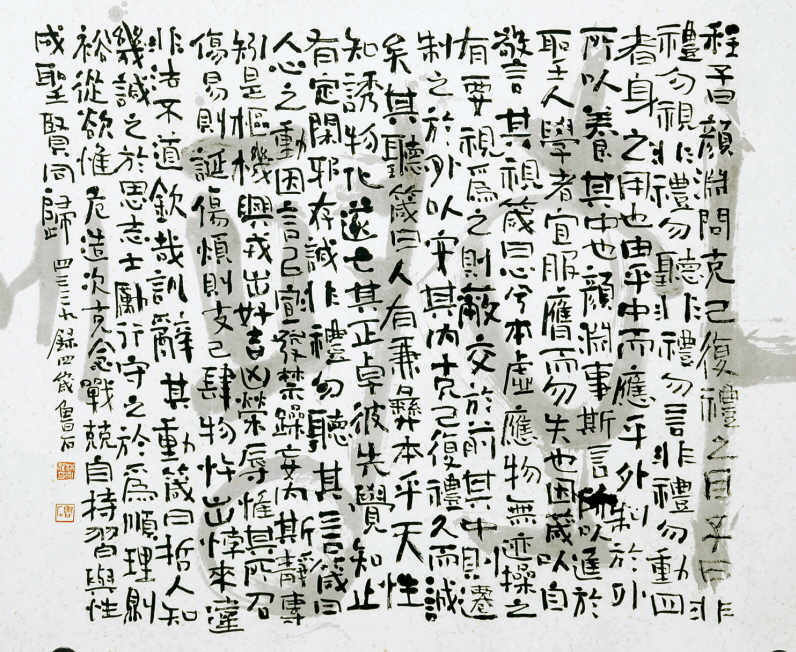 程子曰顏淵問克己復禮之目子曰非
禮勿視非禮勿聽非禮勿言非禮勿動四
者身之用也由乎中而應乎外制於外
所以養其中也顏淵事斯言所以進於
聖人學者宜服膺而勿失也因箴以自
警其視箴曰心兮本虛應物無迹操之
有要視爲之則蔽交於前其中則遷
制之於外以安其內克己復禮久而誠
矣其聽箴曰人有秉彝本乎天性
知誘物化遂亡其正卓彼先覺知止
有定閑邪存誠非禮勿聽其言箴曰
人心之動因言以宣發禁躁妄內斯靜專
矧是樞機興戎出好吉凶榮辱惟其所召
傷易則誕傷煩則支己肆物忤出悖來違
非法不道欽哉訓辭其動箴曰哲人知
幾誠之於思志士勵行守之於爲順理則
裕從欲惟危造次克念戰兢自持習與性
成聖賢同歸 四三三九錄四箴 魯石